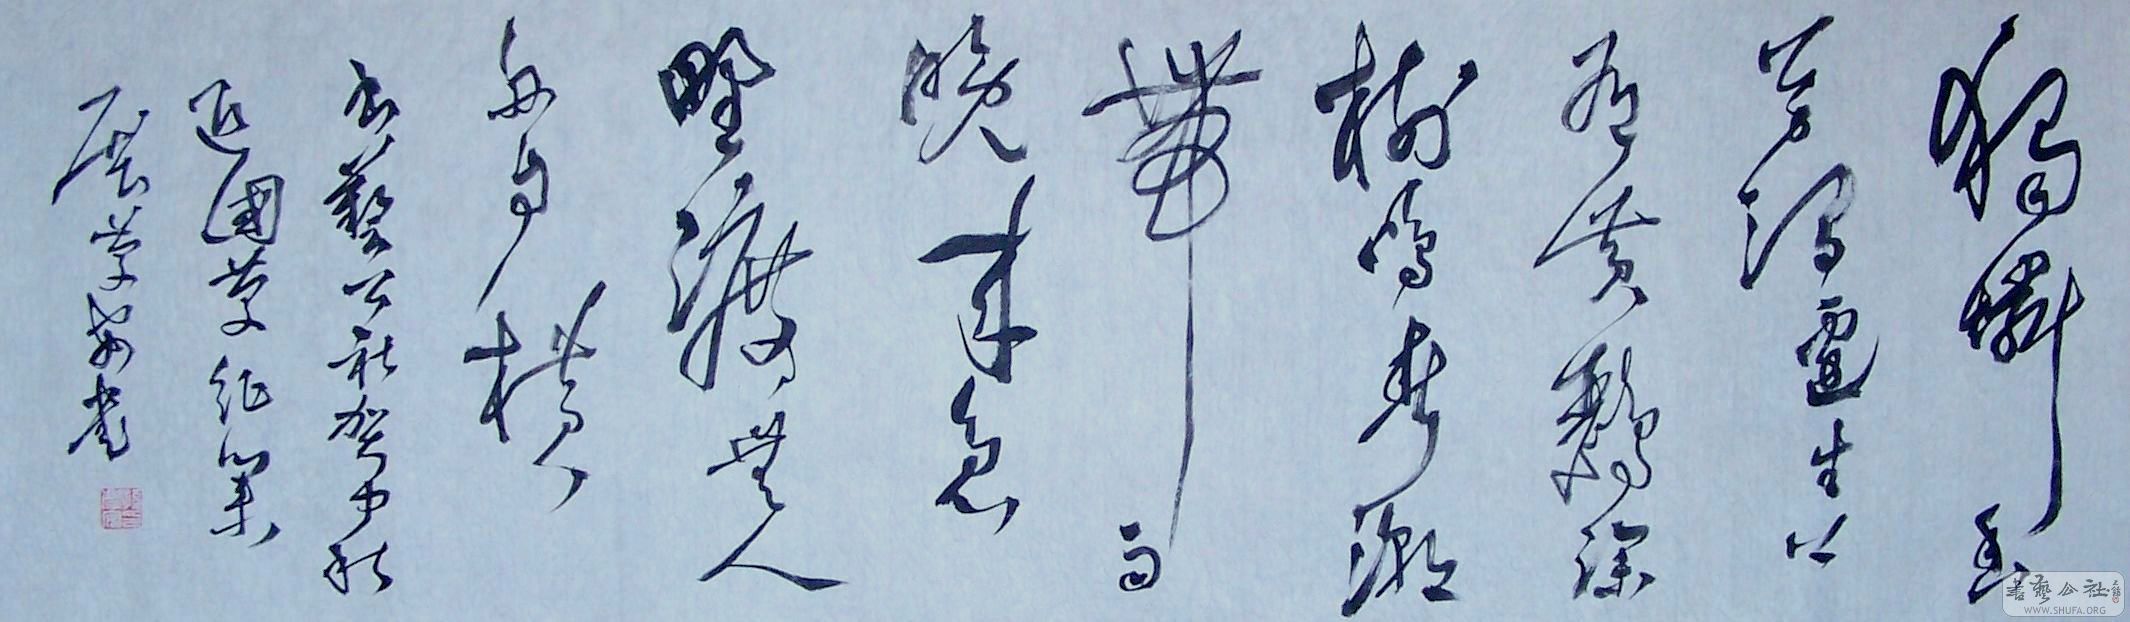 獨憐幽
草澗邊生上
有黃鸝深
樹鳴春潮
帶雨
晚來急
野渡無人
舟自橫
書藝公社賀中秋
迎國慶
展
書
書藝公社
WWW.SHUFA.ORG